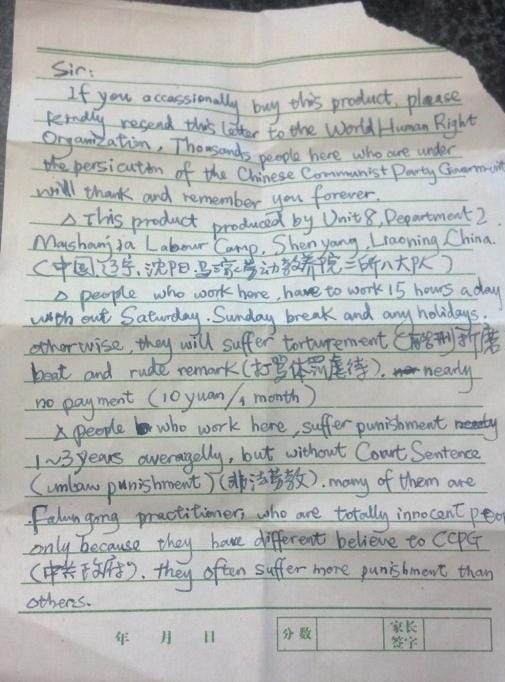 Sir:
If you accassionally buy this product, please
kindly resend this letter to the World Human Right
Organization, Thousands people here who are under
the persicution of the Chinese Communist Party Government
will thank and remember you forever.
△ This product produced by Unit 8, Department 2
Mashanjia Labour Camp, Shenyang, Liaoning, China.
(中国,辽宁,沈阳,马三家劳动教养院二所八大队)
△ people who work here, have to work 15 hours a day
with out Saturday. Sunday break and any holidays.
otherwise, they will suffer torturement 折磨
beat and rude remark (打骂体罚虐待). nearly
no payment (10 yuan/1 month)
△ people who work here, suffer punishment
1~3 years averagelly, but without Court Sentence
(unlaw punishment) (非法劳教). many of them are
Falun gong practitioner, who are totally innocent peop
only because they have different believe to CCPG
(中共政府). they often suffer more punishment than
others.
年 月 日 分数 家长签字